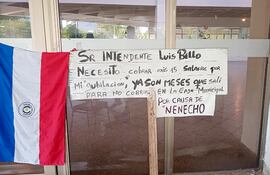 SR INTENDENTE LUIS BELLO
NECESITO COBRAR MIS 15 SALARIOS POR
MI JUBILACION, YA SON MESES QUE SALÍ
PARA NO COBRAR EN LA CAJA MUNICIPAL
POR CAUSA DE
"NENECHO"